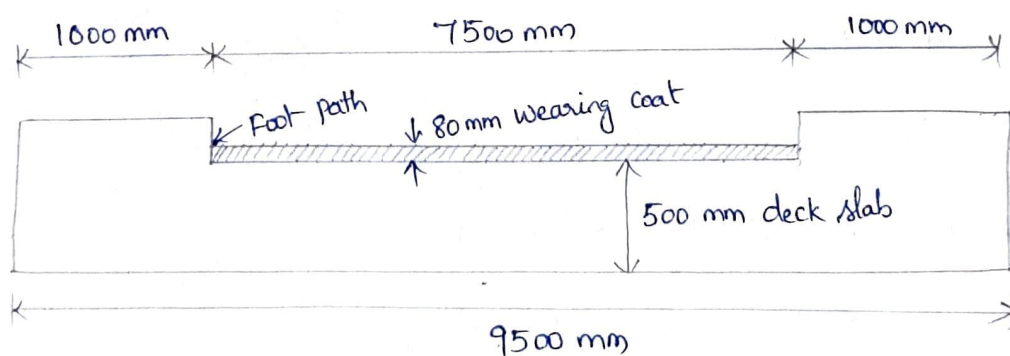 1000 mm
7500 mm
1000 mm
Foot path
80 mm wearing coat
500 mm deck slab
9500 mm